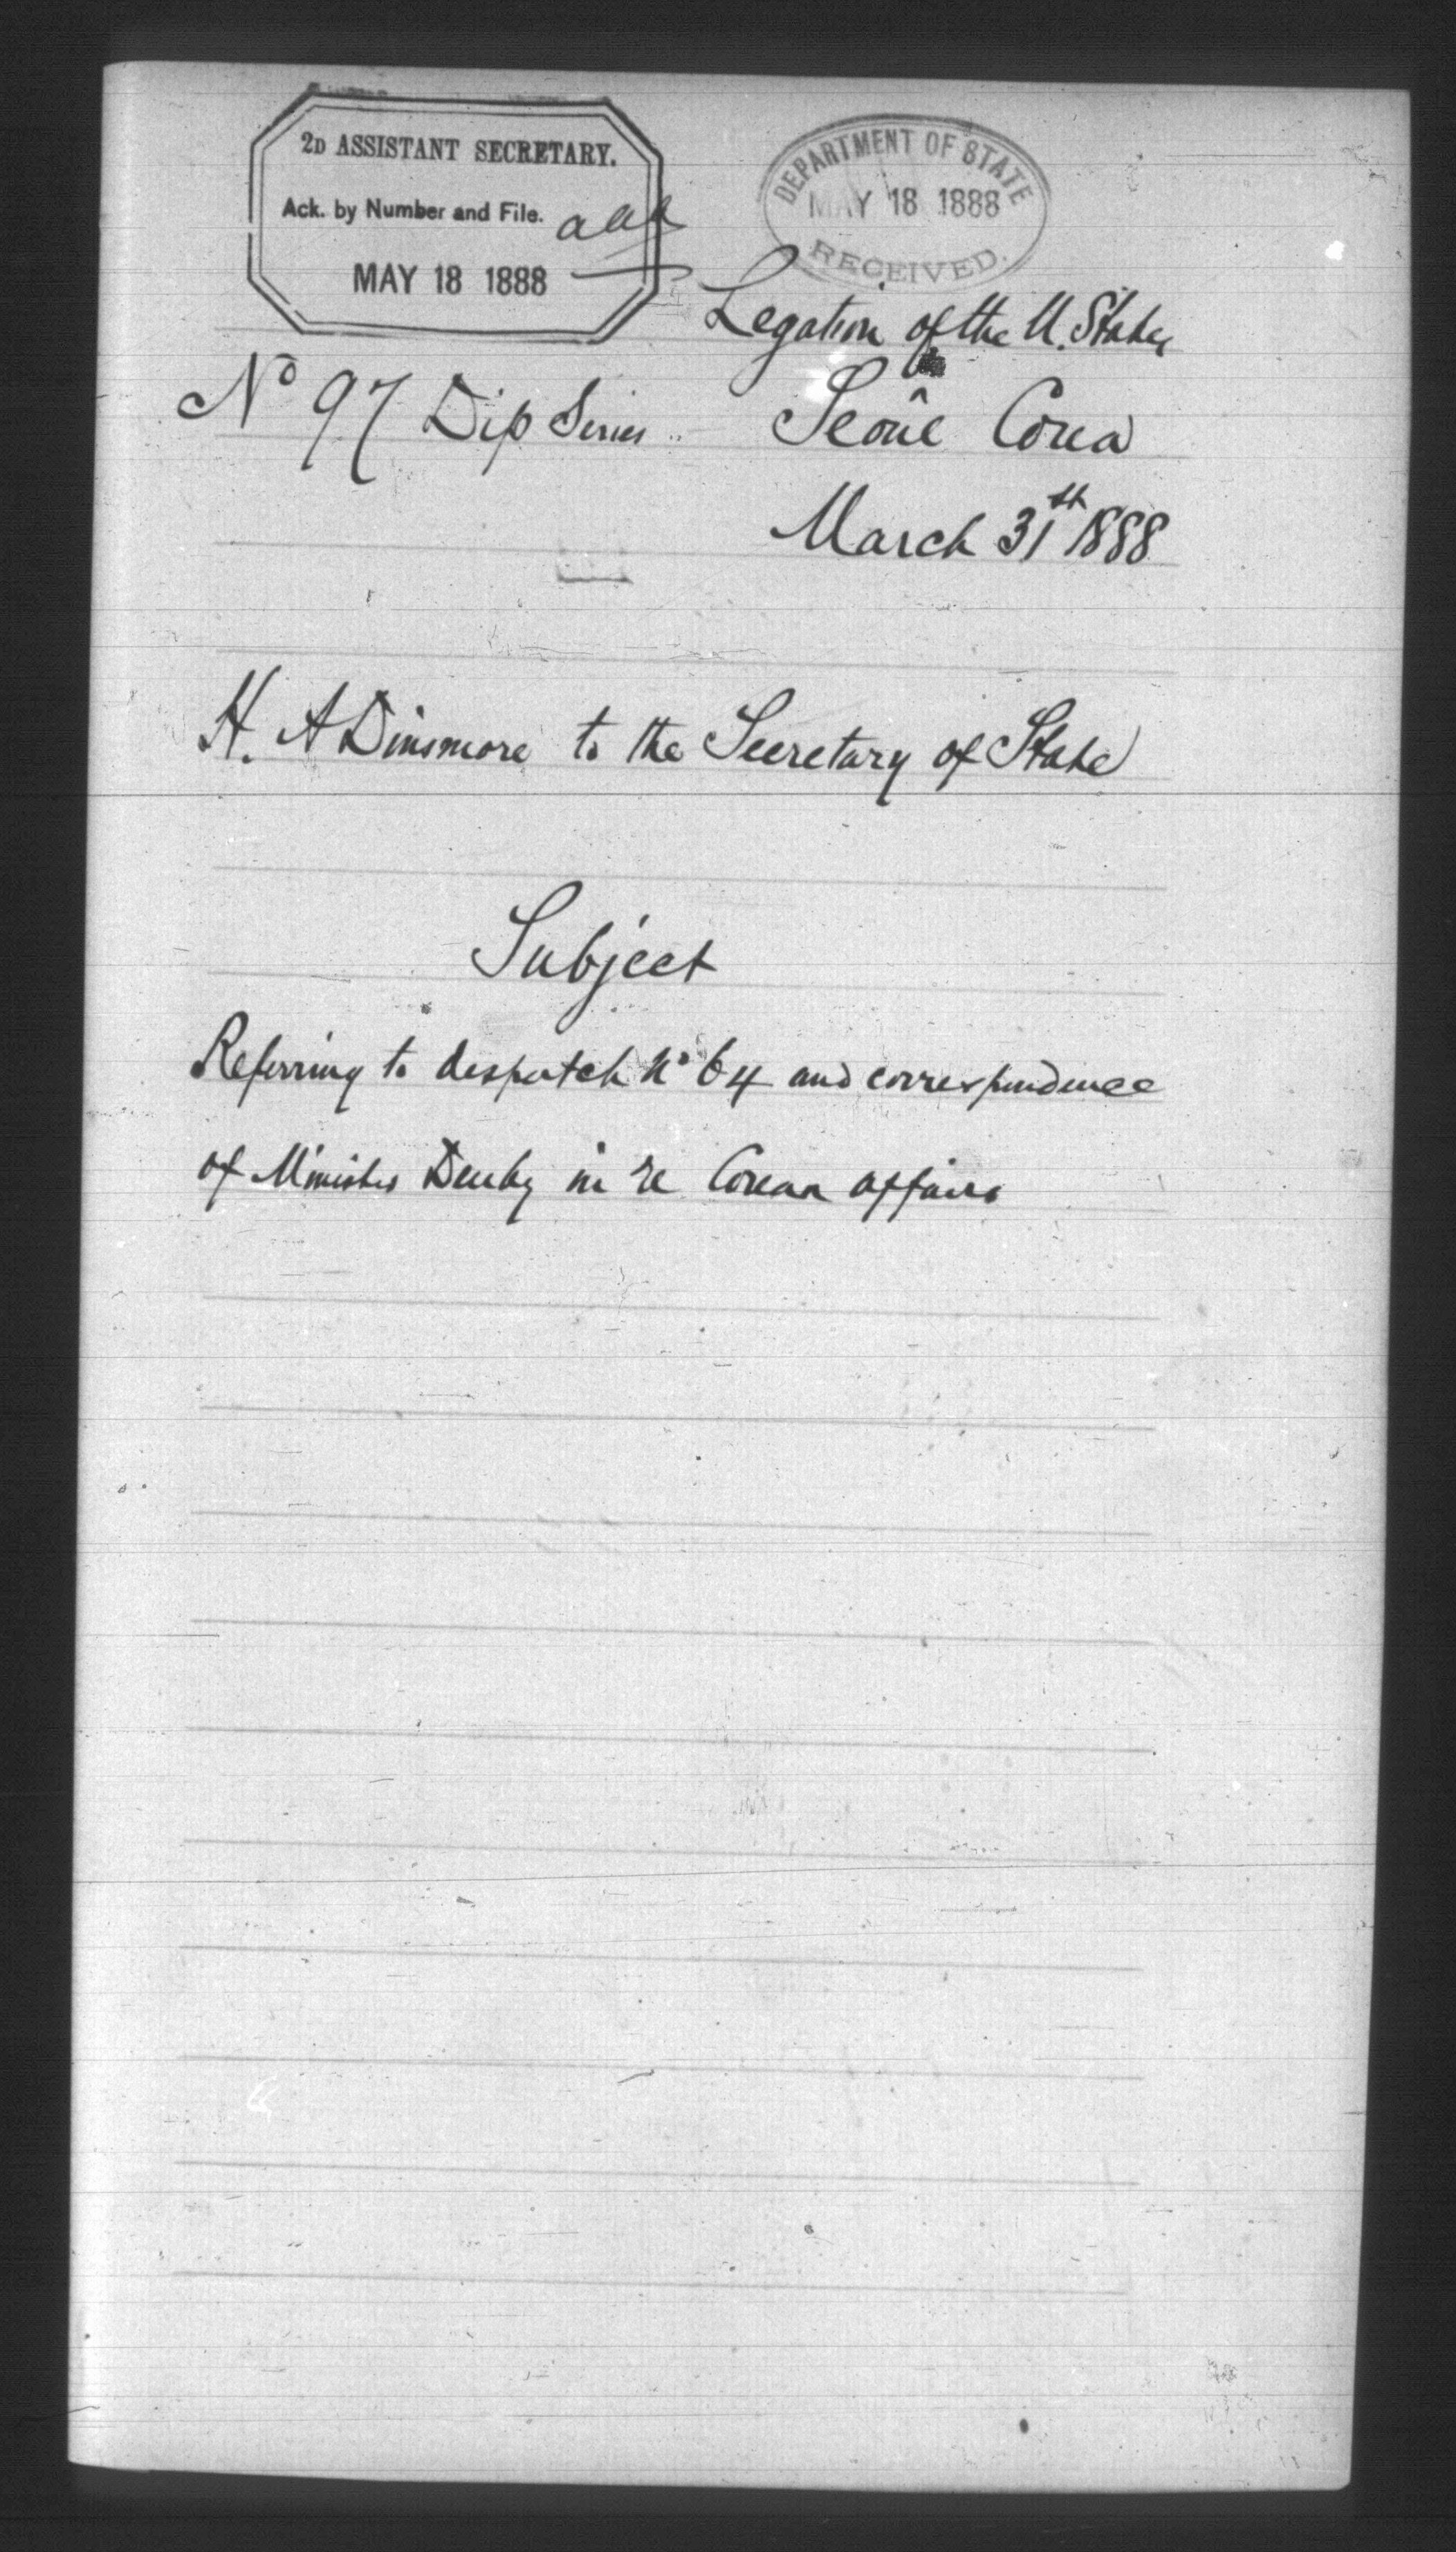 2D ASSISTANT SECRETARY.
Ack. by Number and File.
MAY 18 1888
DEPARTMENT OF STATE
MAY 18 1888
RECEIVED.
Legation of the U. States
No 97 Dip Series Seoul Corea
March 31st 1888
H. A Dinsmore to the Secretary of State
Subject
Referring to despatch No 64 and correspondence
of Minister Denby in re Corean affairs